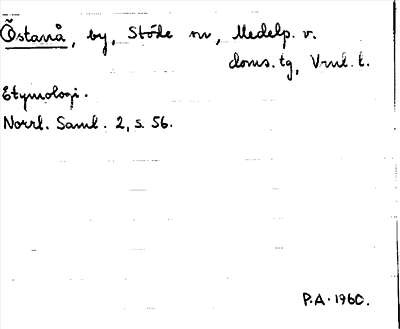 Östanå, by, Stöde sn, Medelp. v.
doms. tg, Vrnl. t.
Etymologi.
Norrl. Saml. 2, s. 56.
P.A. 1960.